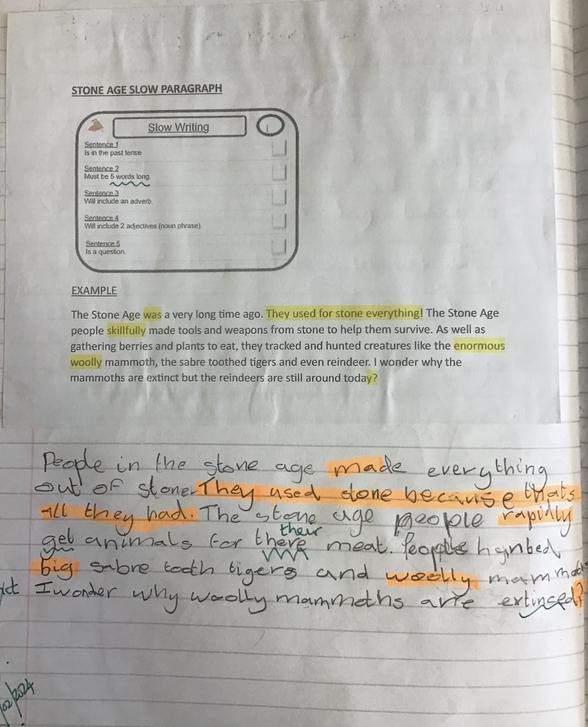 STONE AGE SLOW PARAGRAPH
Slow Writing
Sentence 1
Is in the past tense
Sentence 2
Must be 5 words long.
Sentence 3
Will include an adverb.
Sentence 4
Will include 2 adjectives (noun phrase)
Sentence 5
Is a question.
EXAMPLE
The Stone Age was a very long time ago. They used for stone everything! The Stone Age
people skillfully made tools and weapons from stone to help them survive. As well as
gathering berries and plants to eat, they tracked and hunted creatures like the enormous
woolly mammoth, the sabre toothed tigers and even reindeer. I wonder why the
mammoths are extinct but the reindeers are still around today?
People in the stone age made everything
out of stone. They used stone because thats
all they had. The stone age people rapidly
their
get animals for there meat. People hunted
big sabre tooth tigers and woolly
I wonder why woolly mammoths are extinsed?
02/2024